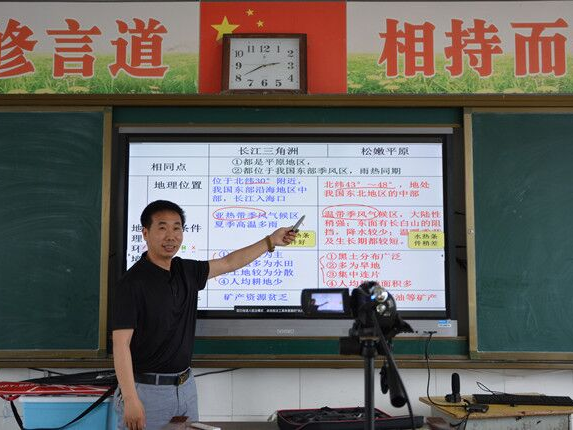 修言道
相持而
长江三角洲 松嫩平原
相同点
①都是平原地区，
②都位于我国东部季风区，雨热同期
地理位置
位于北纬30°附近，
我国东部沿海地区中
部，长江入海口
北纬43°～48°，地处
我国东北地区的中部
亚热带季风气候区
夏季高温多雨
温带季风气候区，大陆性
稍强；东面有长白山的阻
挡，降水较少；
及生长期都较短。
水热条
件稍差
件好
条件
为主
为水田
③土地较为分散
④人均耕地少
①黑土分布广泛
②多为旱地
③集中连片
④人均 面积多
矿产资源贫乏
油等矿产